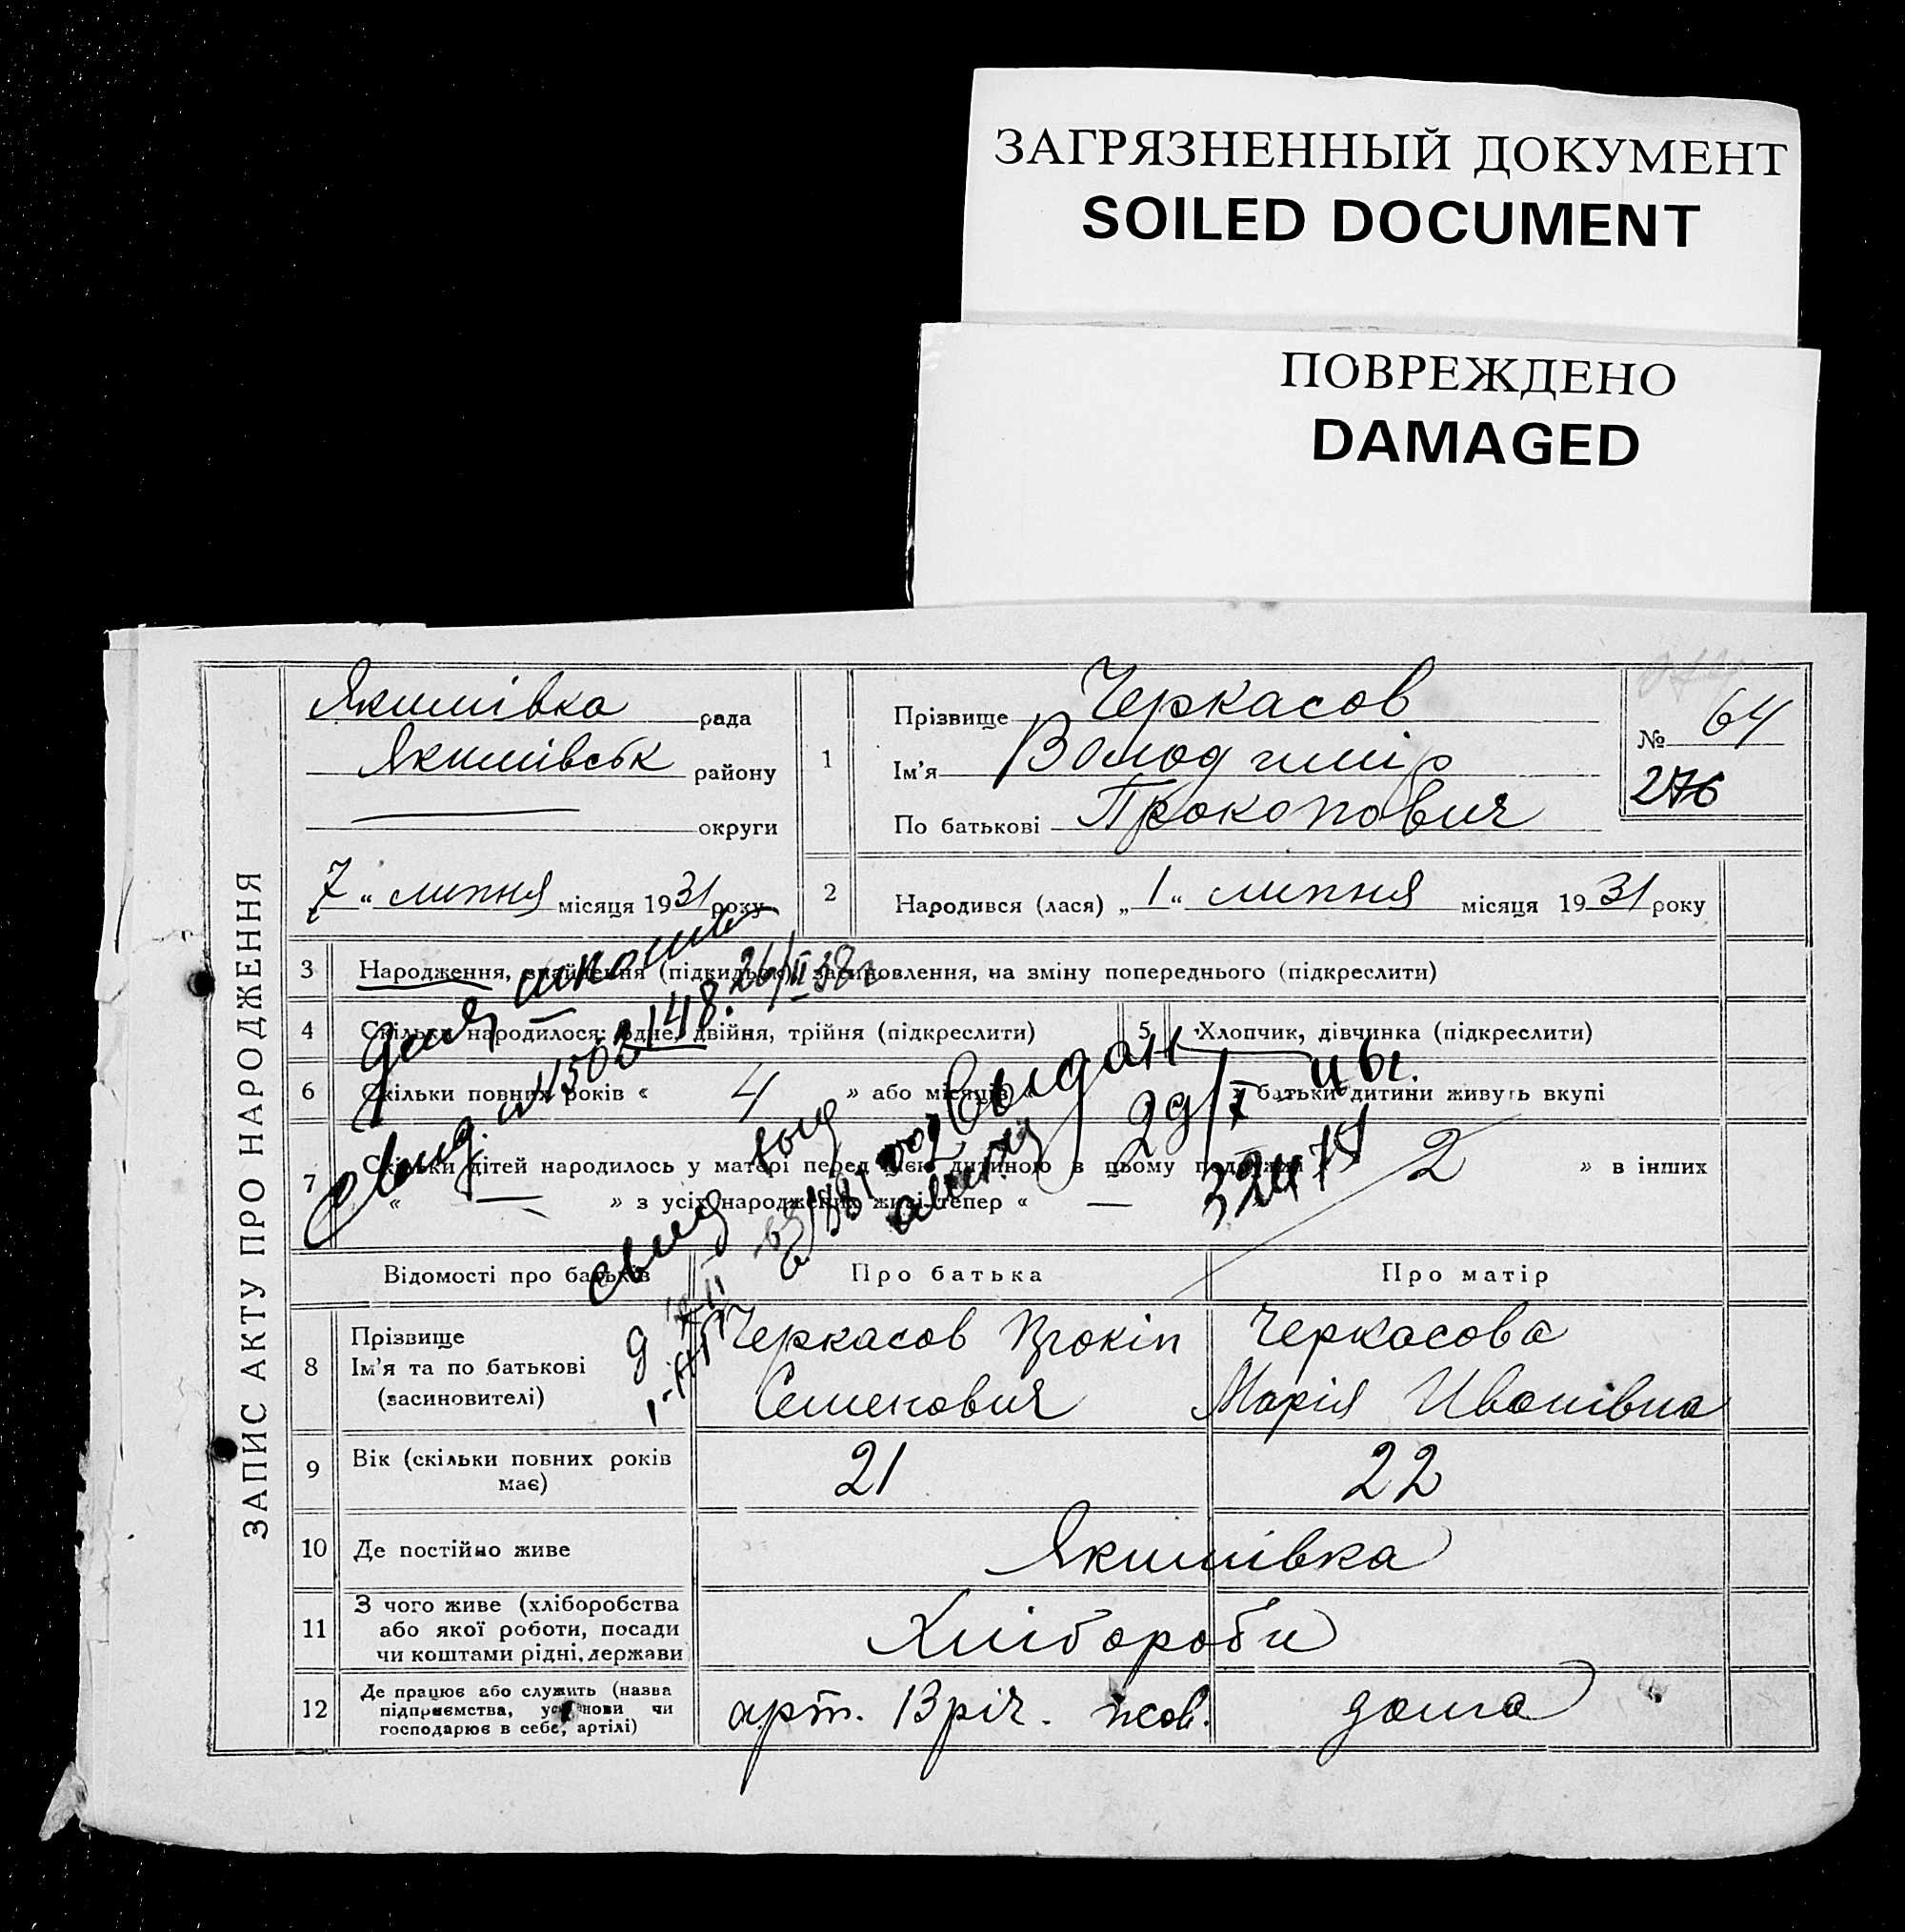 ЗАГРЯЗНЕННЫЙ ДОКУМЕНТ
SOILED DOCUMENT
ПОВРЕЖДЕНО
DAMAGED
ЗАПИС АКТУ ПРО НАРОДЖЕННЯ
Якимівка рада
Якимівськ району
округи
7 " липня місяця 1931 року
1
Прізвище Черкасов
Ім'я Володимір
По батькові Прокопович
№ 64
276
2
Народився (лася) „1" липня місяця 1931 року
3 Народження, знайдення (підкидьок), засиновлення, на зміну попереднього (підкреслити)
4 Скільки народилося: одне, двійня, трійня (підкреслити)
5 Хлопчик, дівчинка (підкреслити)
6 Скільки повних років « 4 » або місяців « батьки дитини живуть вкупі
7 Скільки дітей народилось у матері перед цією дитиною в цьому 2 » в інших
« — » з усіх народжених живі тепер « —
для школы
Свид. 26/II 38г
выдан
29/I
Свид
Відомості про батьків
Про батька
Про матір
8 Прізвище
Ім'я та по батькові
(засиновителі)
Черкасов Прокіп
Семенович
Черкасова
Марія Иванівна
9 Вік (скільки повних років
має)
21
22
10 Де постійно живе
Якимівка
11 З чого живе (хліборобства
або якої роботи, посади
чи коштами рідні, держави
Хлібороби
12 Де працює або служить (назва
підприємства, установи чи
господарює в себе, артілі)
арт. 13 річ.
дома